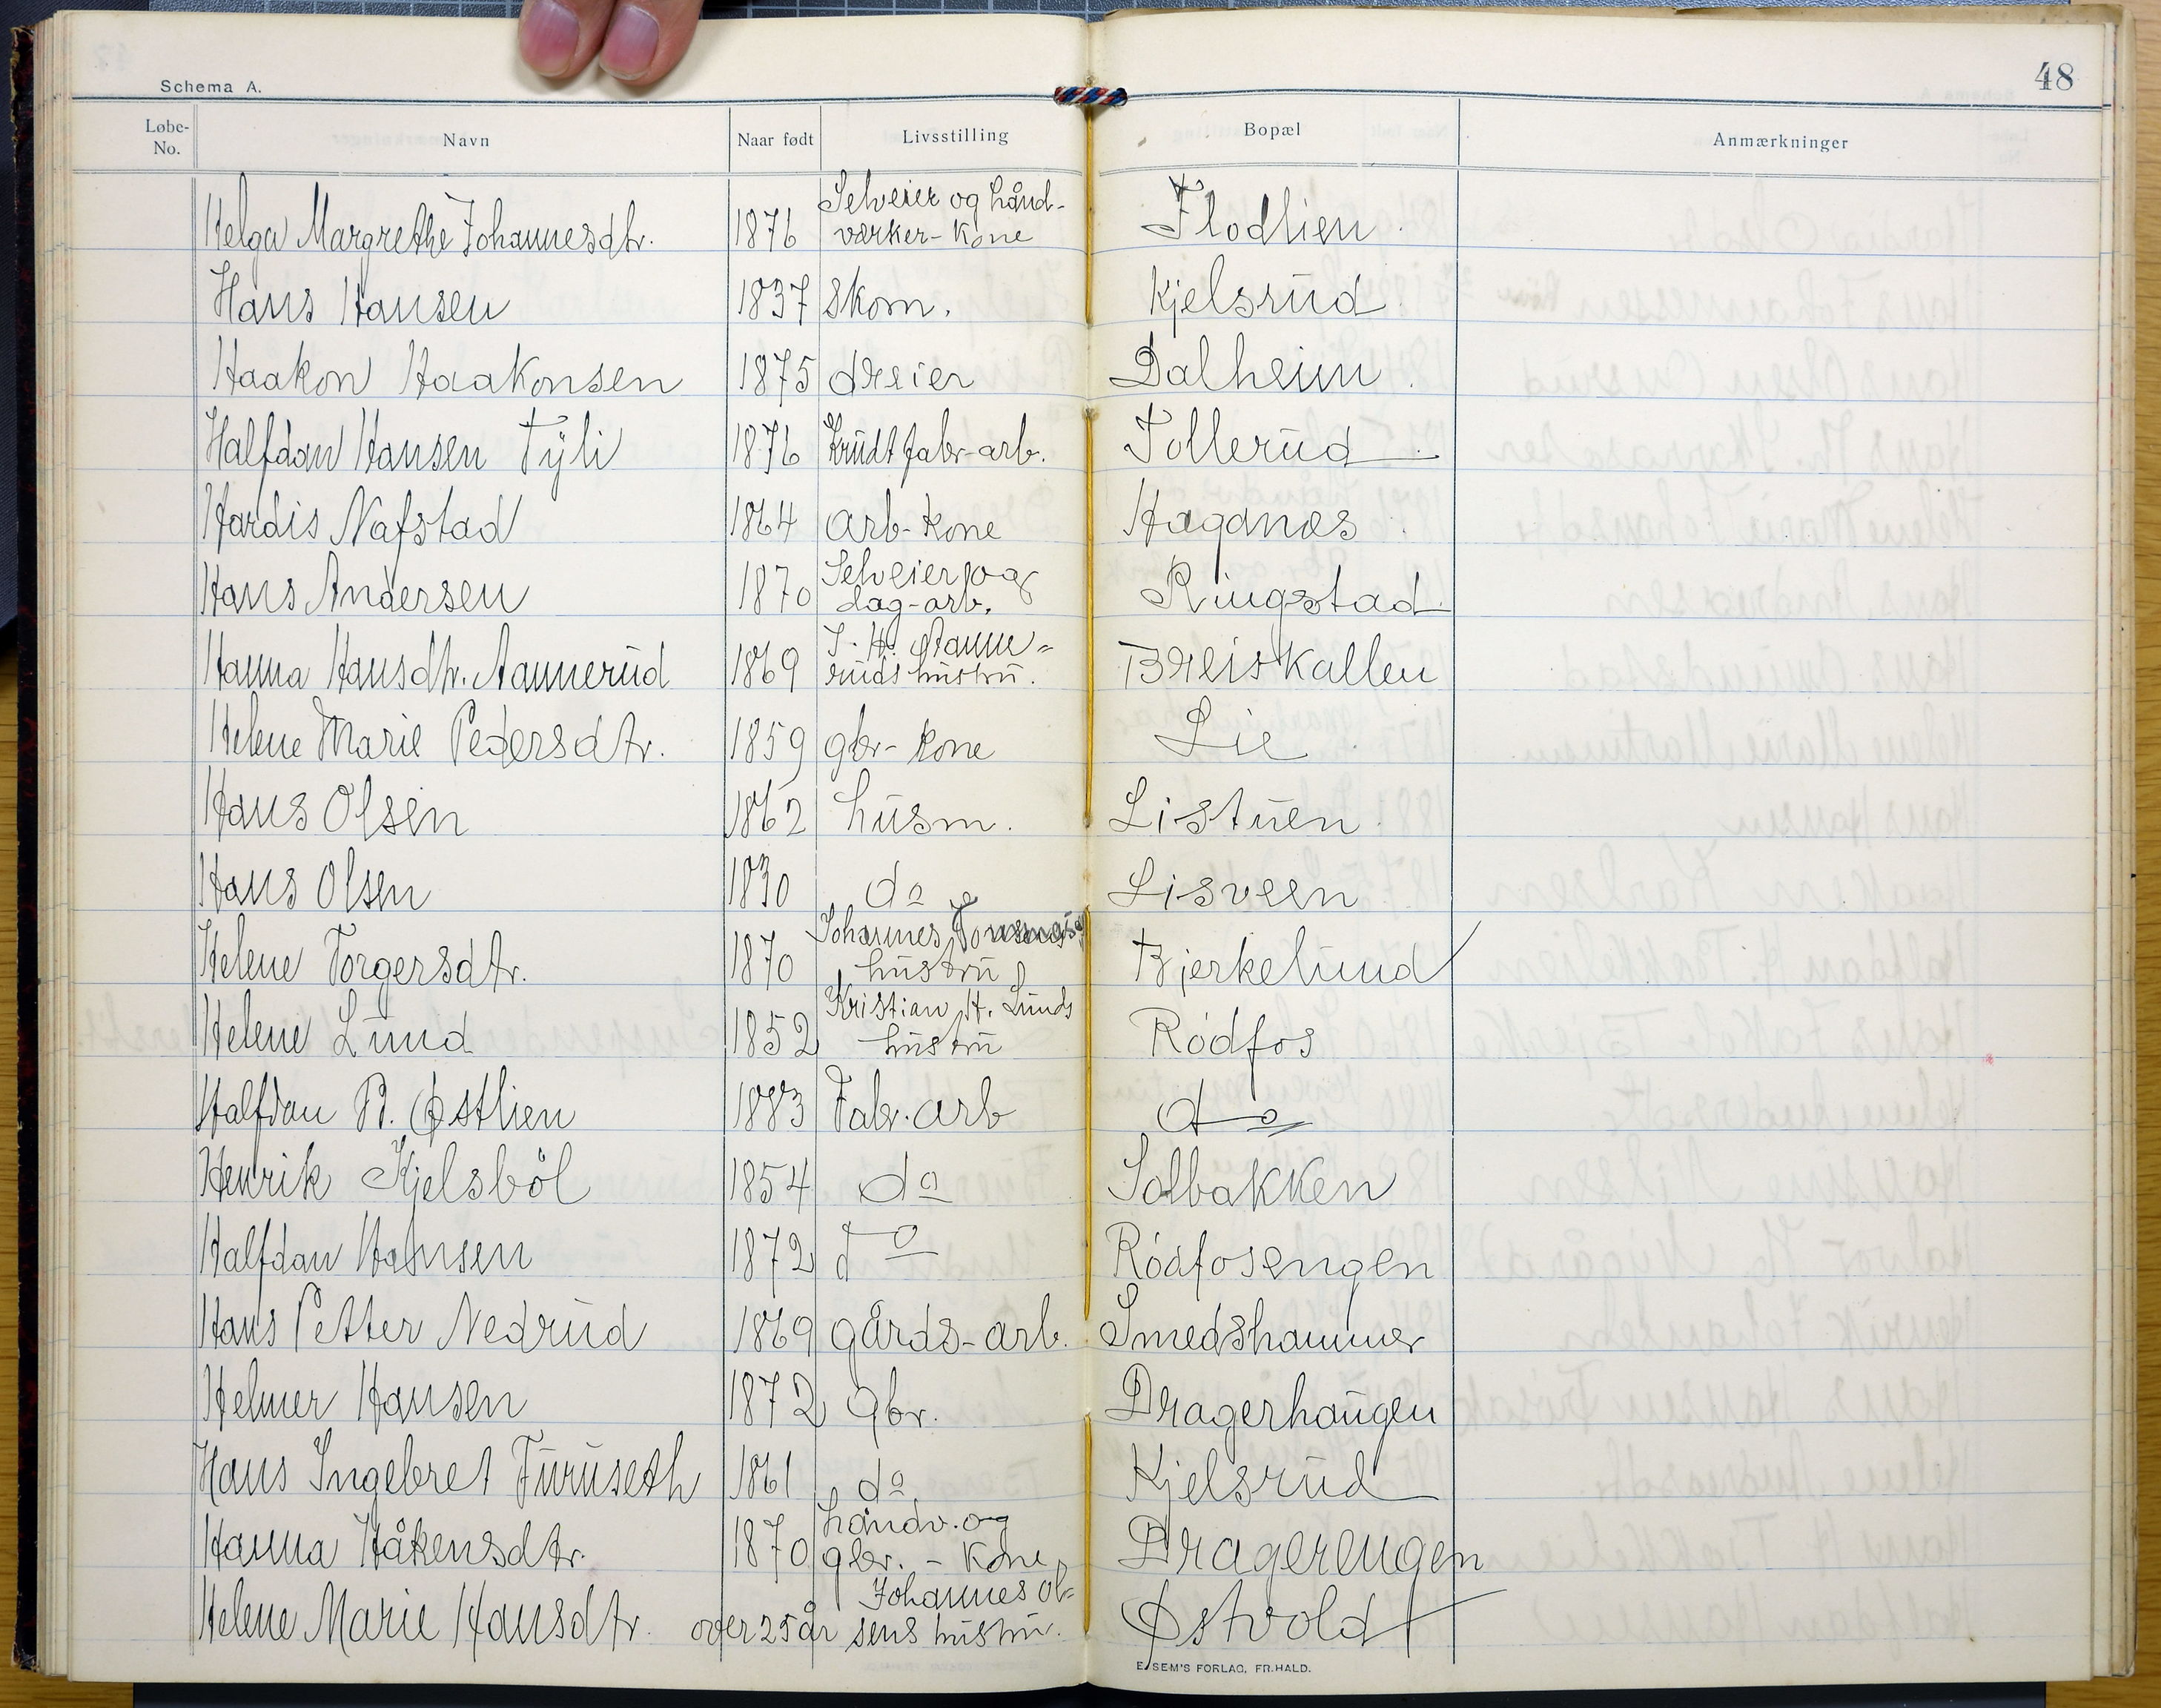 48
Schema A.
Løbe-No. Navn Naar født Livsstilling Bopæl Anmærkninger
Helga Margrethe Johannesdtr. 1876 Selveier og håndværker-kone Flodlien
Hans Hansen 1837 skom. Kjelsrud
Haakon Haakonsen 1875 dreier Dalheim
Halfdan Hansen Tyli 1876 Krudtfabr-arb. Tollerud
Hardis Nafstad 1864 arb-kone Haganæs
Hans Andersen 1870 Selveier og dag-arb. Ringstad
Hanna Hansdtr. Aannerud 1869 J. H. Aanneruds hustru. Breiskallen
Helene Marie Pedersdtr. 1859 gbr-kone Lie
Hans Olsen 1862 husm. Listuen
Hans Olsen 1830 do Lisveen
Helene Torgersdtr. 1870 Johannes hustru Bjerkelund
Helene Lund 1852 Kristian H. Lunds hustru Rødfos
Halfdan B. Østlien 1883 Fabr. arb do
Henrik Kjelsböl 1854 do Solbakken
Halfdan Hansen 1872 do Rødfosengen
Hans Petter Nedrud 1869 gårds-arb. Smedshammer
Helmer Hansen 1872 gbr. Dragerhaugen
Hans Ingebret Furuseth 1861 do Kjelsrud
Hanna Håkensdtr. 1870 håndv. og gbr.-kone Dragerengen
Helene Marie Hansdtr. over 25 år Johannes Olsens hustru. Østvold
E. SEM'S FORLAG, FR.HALD.